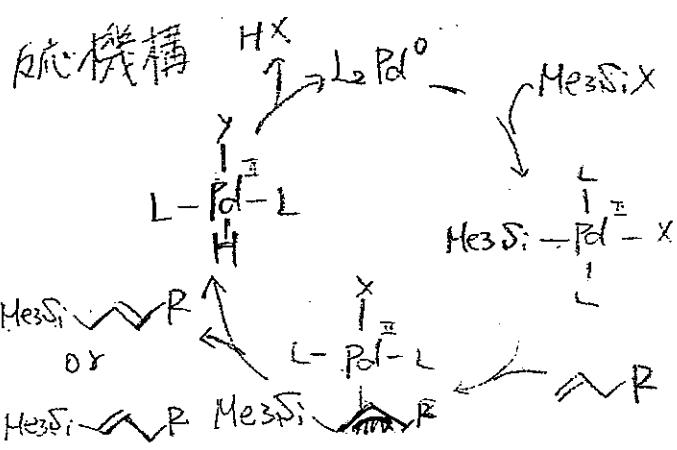 反応機構
HX
L2Pd0
Me3SiX
Y
L-PdII-L
H
L
Me3Si-PdII-X
L
X
L-PdII-L
Me3Si R
R
Me3Si R
or
Me3Si R